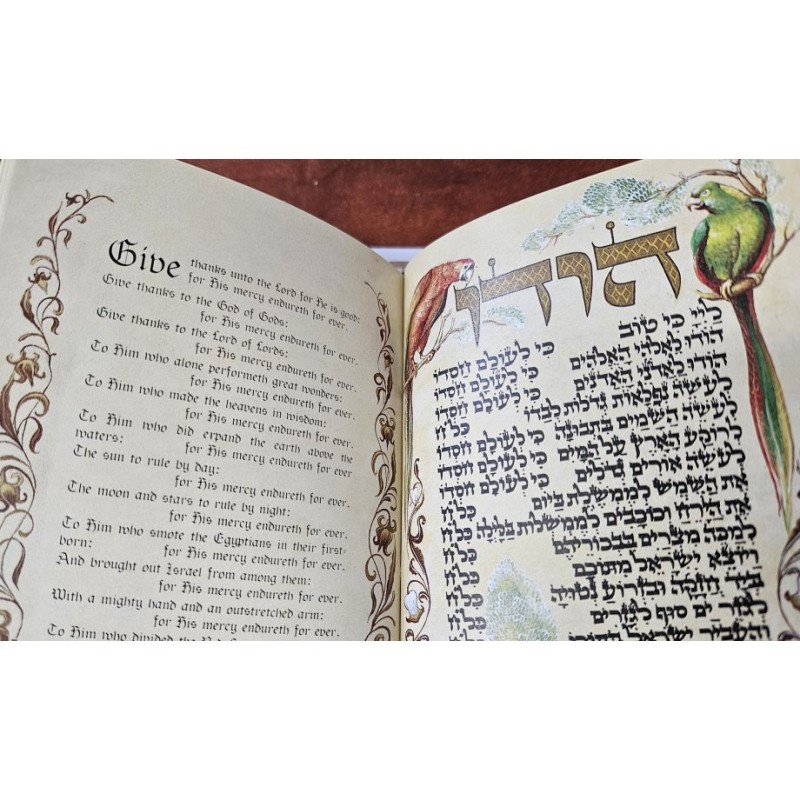 Give thanks unto the Lord for He is good:
for His mercy endureth for ever.
Give thanks to the God of Gods:
for His mercy endureth for ever.
Give thanks to the Lord of Lords:
for His mercy endureth for ever.
To Him who alone performeth great wonders:
for His mercy endureth for ever.
To Him who made the heavens in wisdom:
for His mercy endureth for ever.
To Him who did expand the earth above the
waters: for His mercy endureth for ever
The sun to rule by day:
for His mercy endureth for ever.
The moon and stars to rule by night:
for His mercy endureth for ever.
To Him who smote the Egyptians in their first-
born: for His mercy endureth for ever.
And brought out Israel from among them:
for His mercy endureth for ever.
With a mighty hand and an outstretched arm:
for His mercy endureth for ever.
To Him who divided the
הודו
לַיְיָ כִּי טוֹב כִּי לְעוֹלָם חַסְדּוֹ
הוֹדוּ לֵאלֹהֵי הָאֱלֹהִים כִּי לְעוֹלָם חַסְדּוֹ
הוֹדוּ לַאֲדֹנֵי הָאֲדֹנִים כִּי לְעוֹלָם חַסְדּוֹ
לְעֹשֵׂה נִפְלָאוֹת גְּדֹלוֹת לְבַדּוֹ כל"ח
לְעֹשֵׂה הַשָּׁמַיִם בִּתְבוּנָה כִּי לְעוֹלָם חַסְדּוֹ
לְרוֹקַע הָאָרֶץ עַל הַמָּיִם כִּי לְעוֹלָם חַסְדּוֹ
לְעֹשֵׂה אוֹרִים גְּדֹלִים כִּי לְעוֹלָם חַסְדּוֹ
אֶת הַשֶּׁמֶשׁ לְמֶמְשֶׁלֶת בַּיּוֹם כל"ח
אֶת הַיָּרֵחַ וְכוֹכָבִים לְמֶמְשְׁלוֹת בַּלָּיְלָה כל"ח
לְמַכֵּה מִצְרַיִם בִּבְכוֹרֵיהֶם כל"ח
וַיּוֹצֵא יִשְׂרָאֵל מִתּוֹכָם כל"ח
בְּיָד חֲזָקָה וּבִזְרוֹעַ נְטוּיָה כל"ח
לְגֹזֵר יַם סוּף לִגְזָרִים כל"ח
וְהֶעֱבִיר יִשְׂרָאֵל